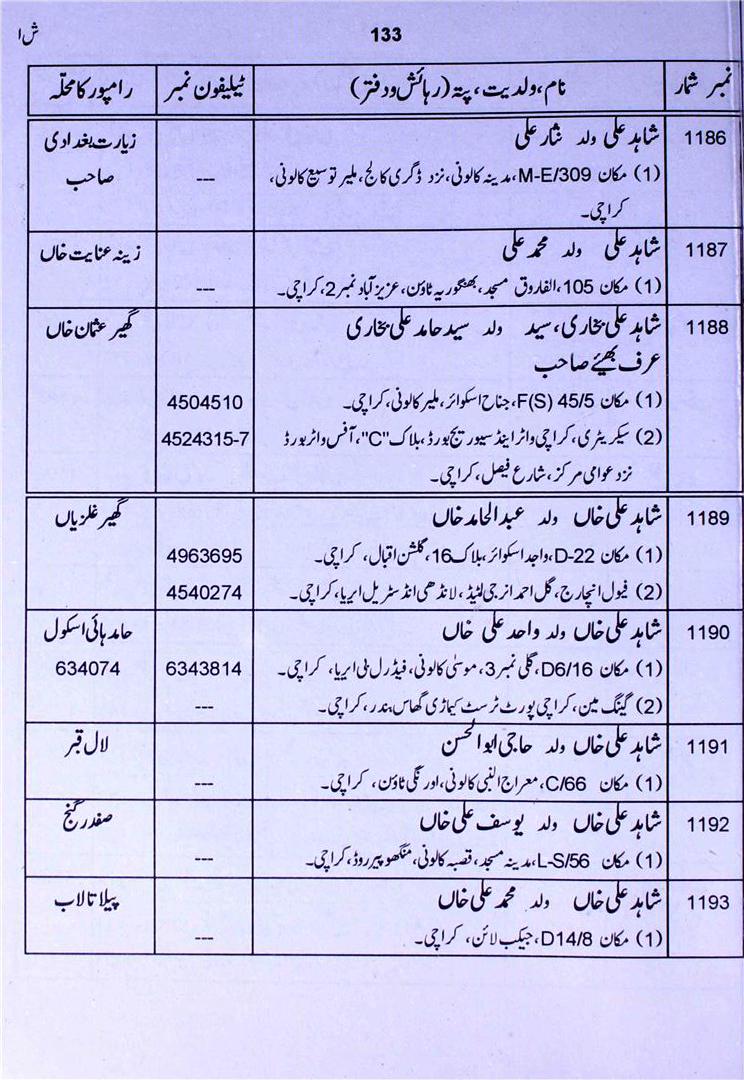 ش ا
133
نمبر شمار نام، ولدیت، پتہ (رہائش و دفتر) ٹیلیفون نمبر رامپور کا محلّہ
1186 شاہد علی ولد نثار علی زیارت بغدادی
(1) مکان M-E/309، مدینہ کالونی، نزد ڈگری کالج، ملیر توسیع کالونی، --- صاحب
کراچی۔
1187 شاہد علی ولد محمد علی زینہ عنایت خاں
(1) مکان 105، الفاروق مسجد، بھنگوریہ ٹاؤن، عزیز آباد نمبر 2، کراچی۔ ---
1188 شاہد علی بخاری، سید ولد سید حامد علی بخاری گھیر عثمان خاں
عرف بھیّے صاحب
(1) مکان F(S) 45/5، جناح اسکوائر، ملیر کالونی، کراچی۔ 4504510
(2) سیکریٹری، کراچی واٹر اینڈ سیوریج بورڈ، بلاک "C"، آفس واٹر بورڈ 4524315-7
نزد عوامی مرکز، شارع فیصل، کراچی۔
1189 شاہد علی خاں ولد عبدالحامد خاں گھیر غلزیاں
(1) مکان D-22، واجد اسکوائر، بلاک 16، گلشن اقبال، کراچی۔ 4963695
(2) فیول انچارج، گل احمد انرجی لمٹیڈ، لانڈھی انڈسٹریل ایریا، کراچی۔ 4540274
1190 شاہد علی خاں ولد واحد علی خاں حامد ہائی اسکول
(1) مکان D6/16، گلی نمبر 3، موسیٰ کالونی، فیڈرل بی ایریا، کراچی۔ 6343814 634074
(2) گینگ مین، کراچی پورٹ ٹرسٹ کیماڑی گھاس بندر، کراچی۔ ---
1191 شاہد علی خاں ولد حاجی ابوالحسن لال قبر
(1) مکان C/66، معراج النبی کالونی، اورنگی ٹاؤن، کراچی۔ ---
1192 شاہد علی خاں ولد یوسف علی خاں صفدر گنج
(1) مکان L-S/56، مدینہ مسجد، قصبہ کالونی، منگھو پیر روڈ، کراچی۔ ---
1193 شاہد علی خاں ولد محمد علی خاں پیلا تالاب
(1) مکان D14/8، جیکب لائن، کراچی۔ ---